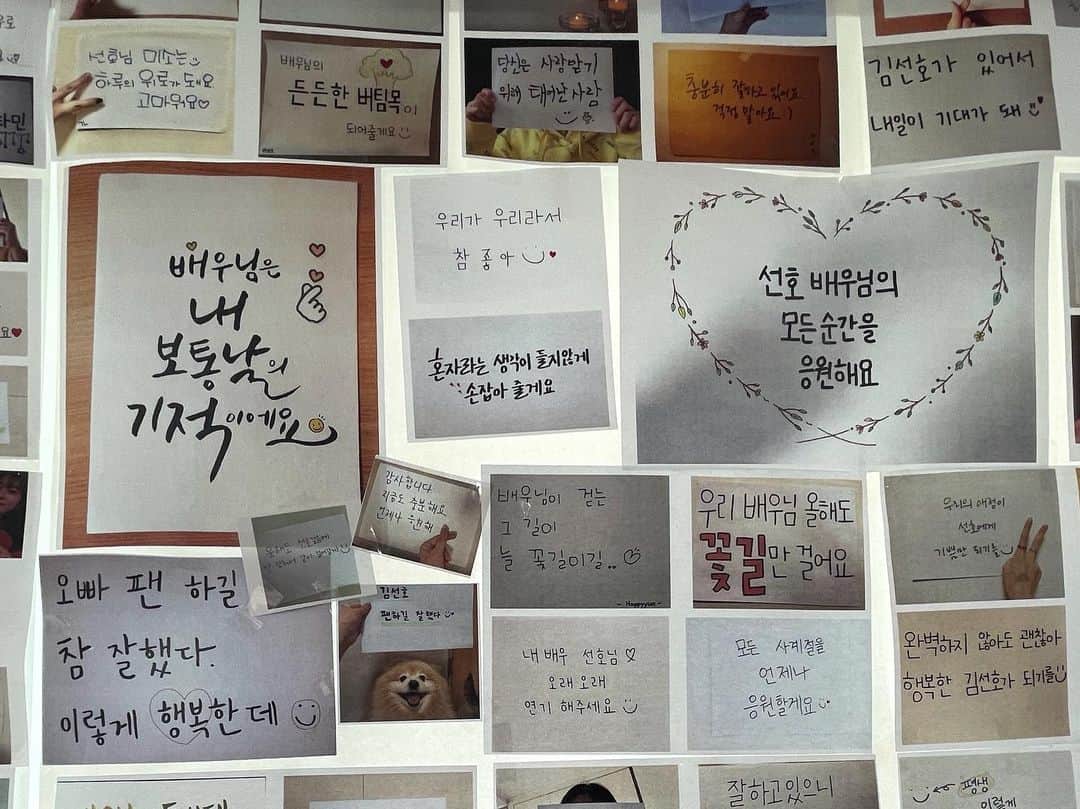 선호님 미소는
하루의 위로가 돼요
고마워요♡
배우님의
든든한 버팀목이
되어줄게요
당신은 사랑받기
위해 태어난 사람
충분히 잘하고 있어요
걱정 말아요 :)
김선호가 있어서
내일이 기대가 돼
배우님은
내
보통날의
기적이에요
우리가 우리라서
참 좋아
혼자라는 생각이 들지않게
손잡아 줄게요
선호 배우님의
모든 순간을
응원해요
감사합니다
지금도 충분해요
언제나 응원해
배우님이 걷는
그 길이
늘 꽃길이길..
- Happyyun -
우리 배우님 올해도
꽃길만 걸어요
우리의 애정이
선호에게
기쁨만 되기를
오빠 팬 하길
참 잘했다.
이렇게 행복한 데
김선호
팬하길 잘했다
내 배우 선호님♡
오래 오래
연기 해주세요
모든 사계절을
언제나
응원할게요
완벽하지 않아도 괜찮아
행복한 김선호가 되기를
잘하고있으니
평생
이렇게